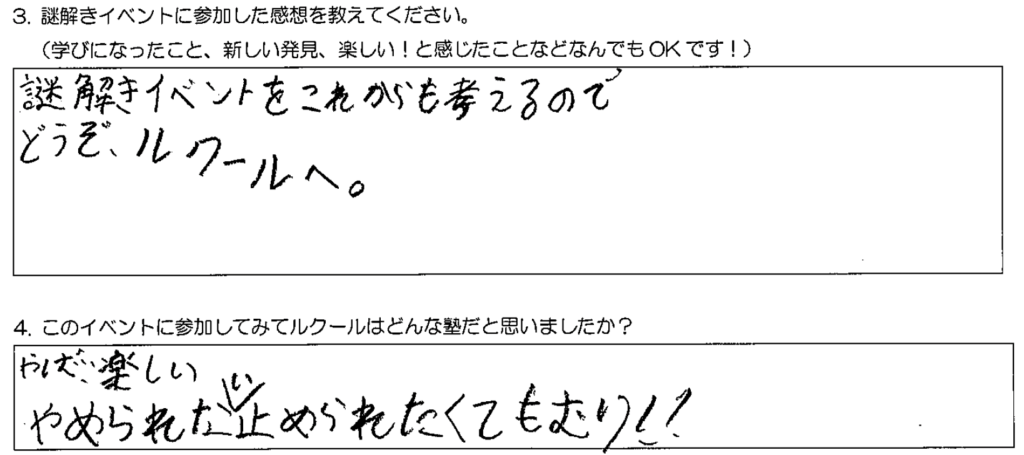 3. 謎解きイベントに参加した感想を教えてください。
(学びになったこと、新しい発見、楽しい!と感じたことなどなんでもOKです!)
謎解きイベントをこれからも考えるので
どうぞ、ルクールへ。
4. このイベントに参加してみてルクールはどんな塾だと思いましたか?
楽しい
い
やめられた止められたくてもむり!?